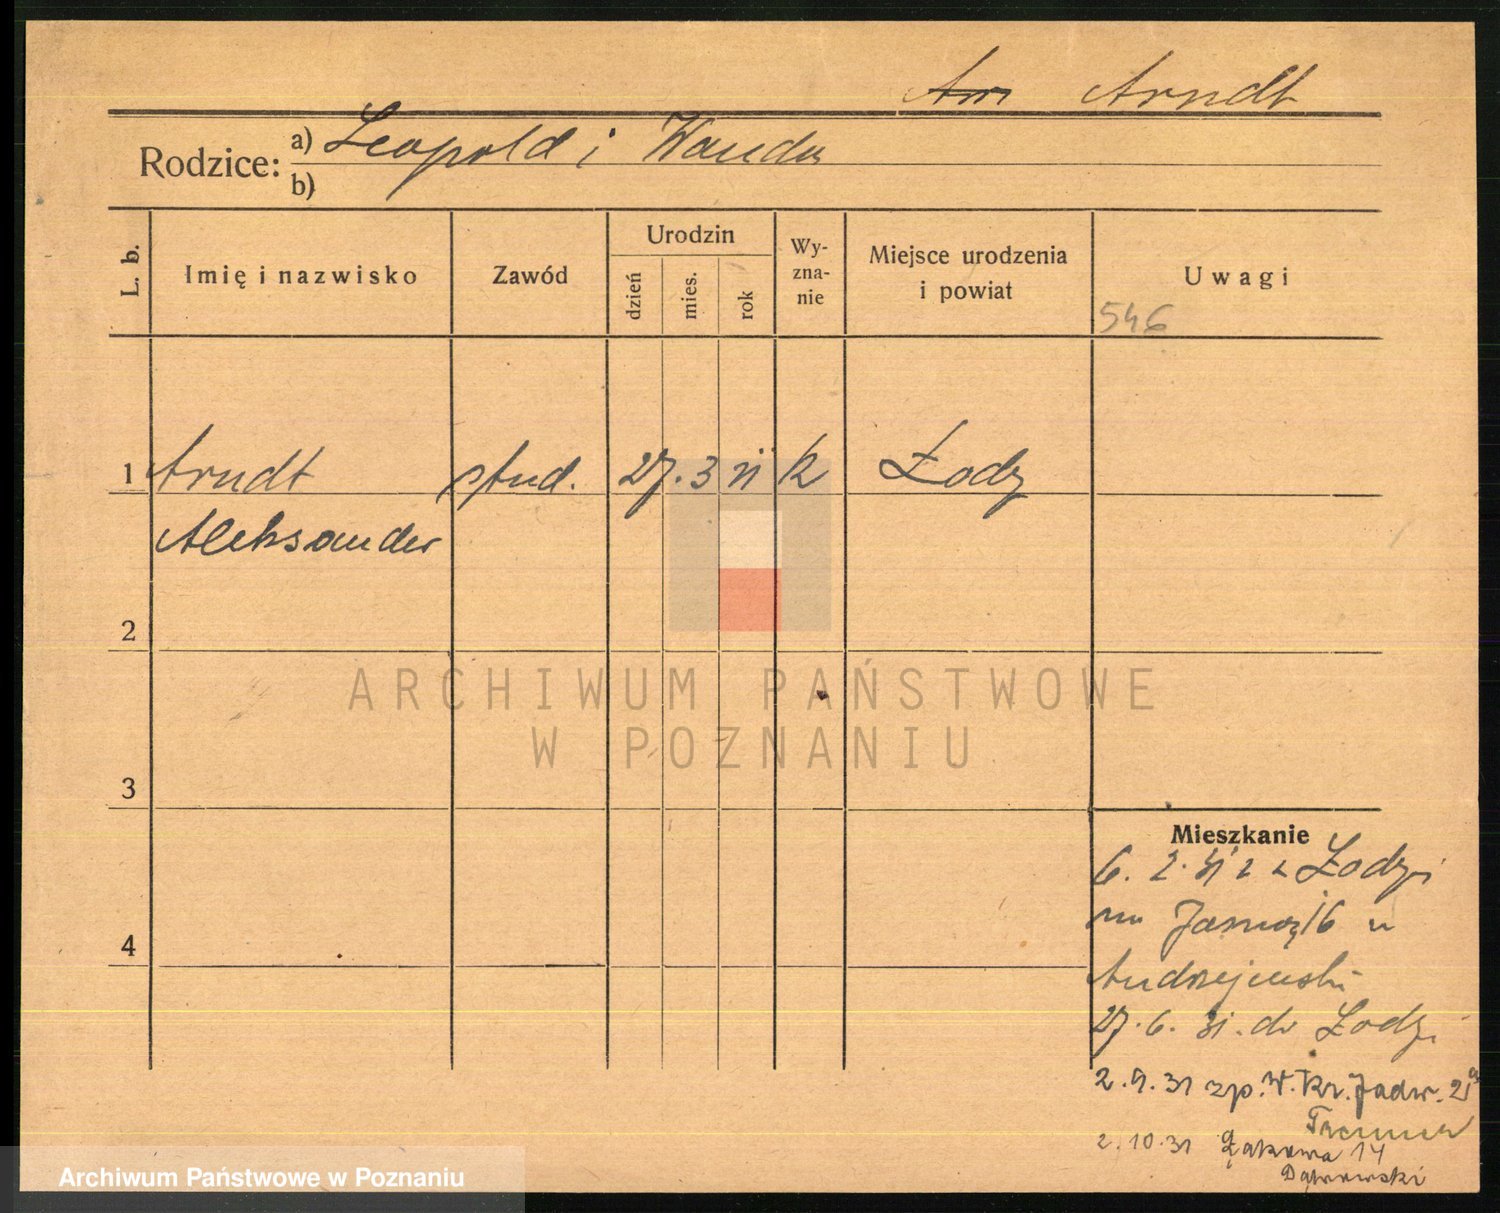 Arn Arndt
Rodzice: a) Leopold i Wanda
b)
L. b.
Imię i nazwisko
Zawód
Urodzin
dzień
mies.
rok
Wy-
zna-
nie
Miejsce urodzenia
i powiat
Uwagi
546
1 Arndt stud. 27. 3 11 k Łódź
Aleksander
2
3
4
ARCHIWUM PAŃSTWOWE
W POZNANIU
Mieszkanie
6. 2. 31 z Łodzi
na 16 u
Andrzejewski
27. 6. 31. do Łodzi
2. 9. 31 zp. W. Kr. Jadw. 2
2. 10. 31 Łąkowa 14
Dąbrowski
Archiwum Państwowe w Poznaniu